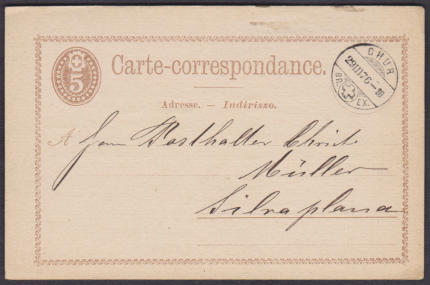 5
Carte-correspondance.
CHUR
29 III 76 - 10
BR. EX.
Adresse. — Indirizzo.
A Herrn Posthalter Christ.
Müller
Silvaplana